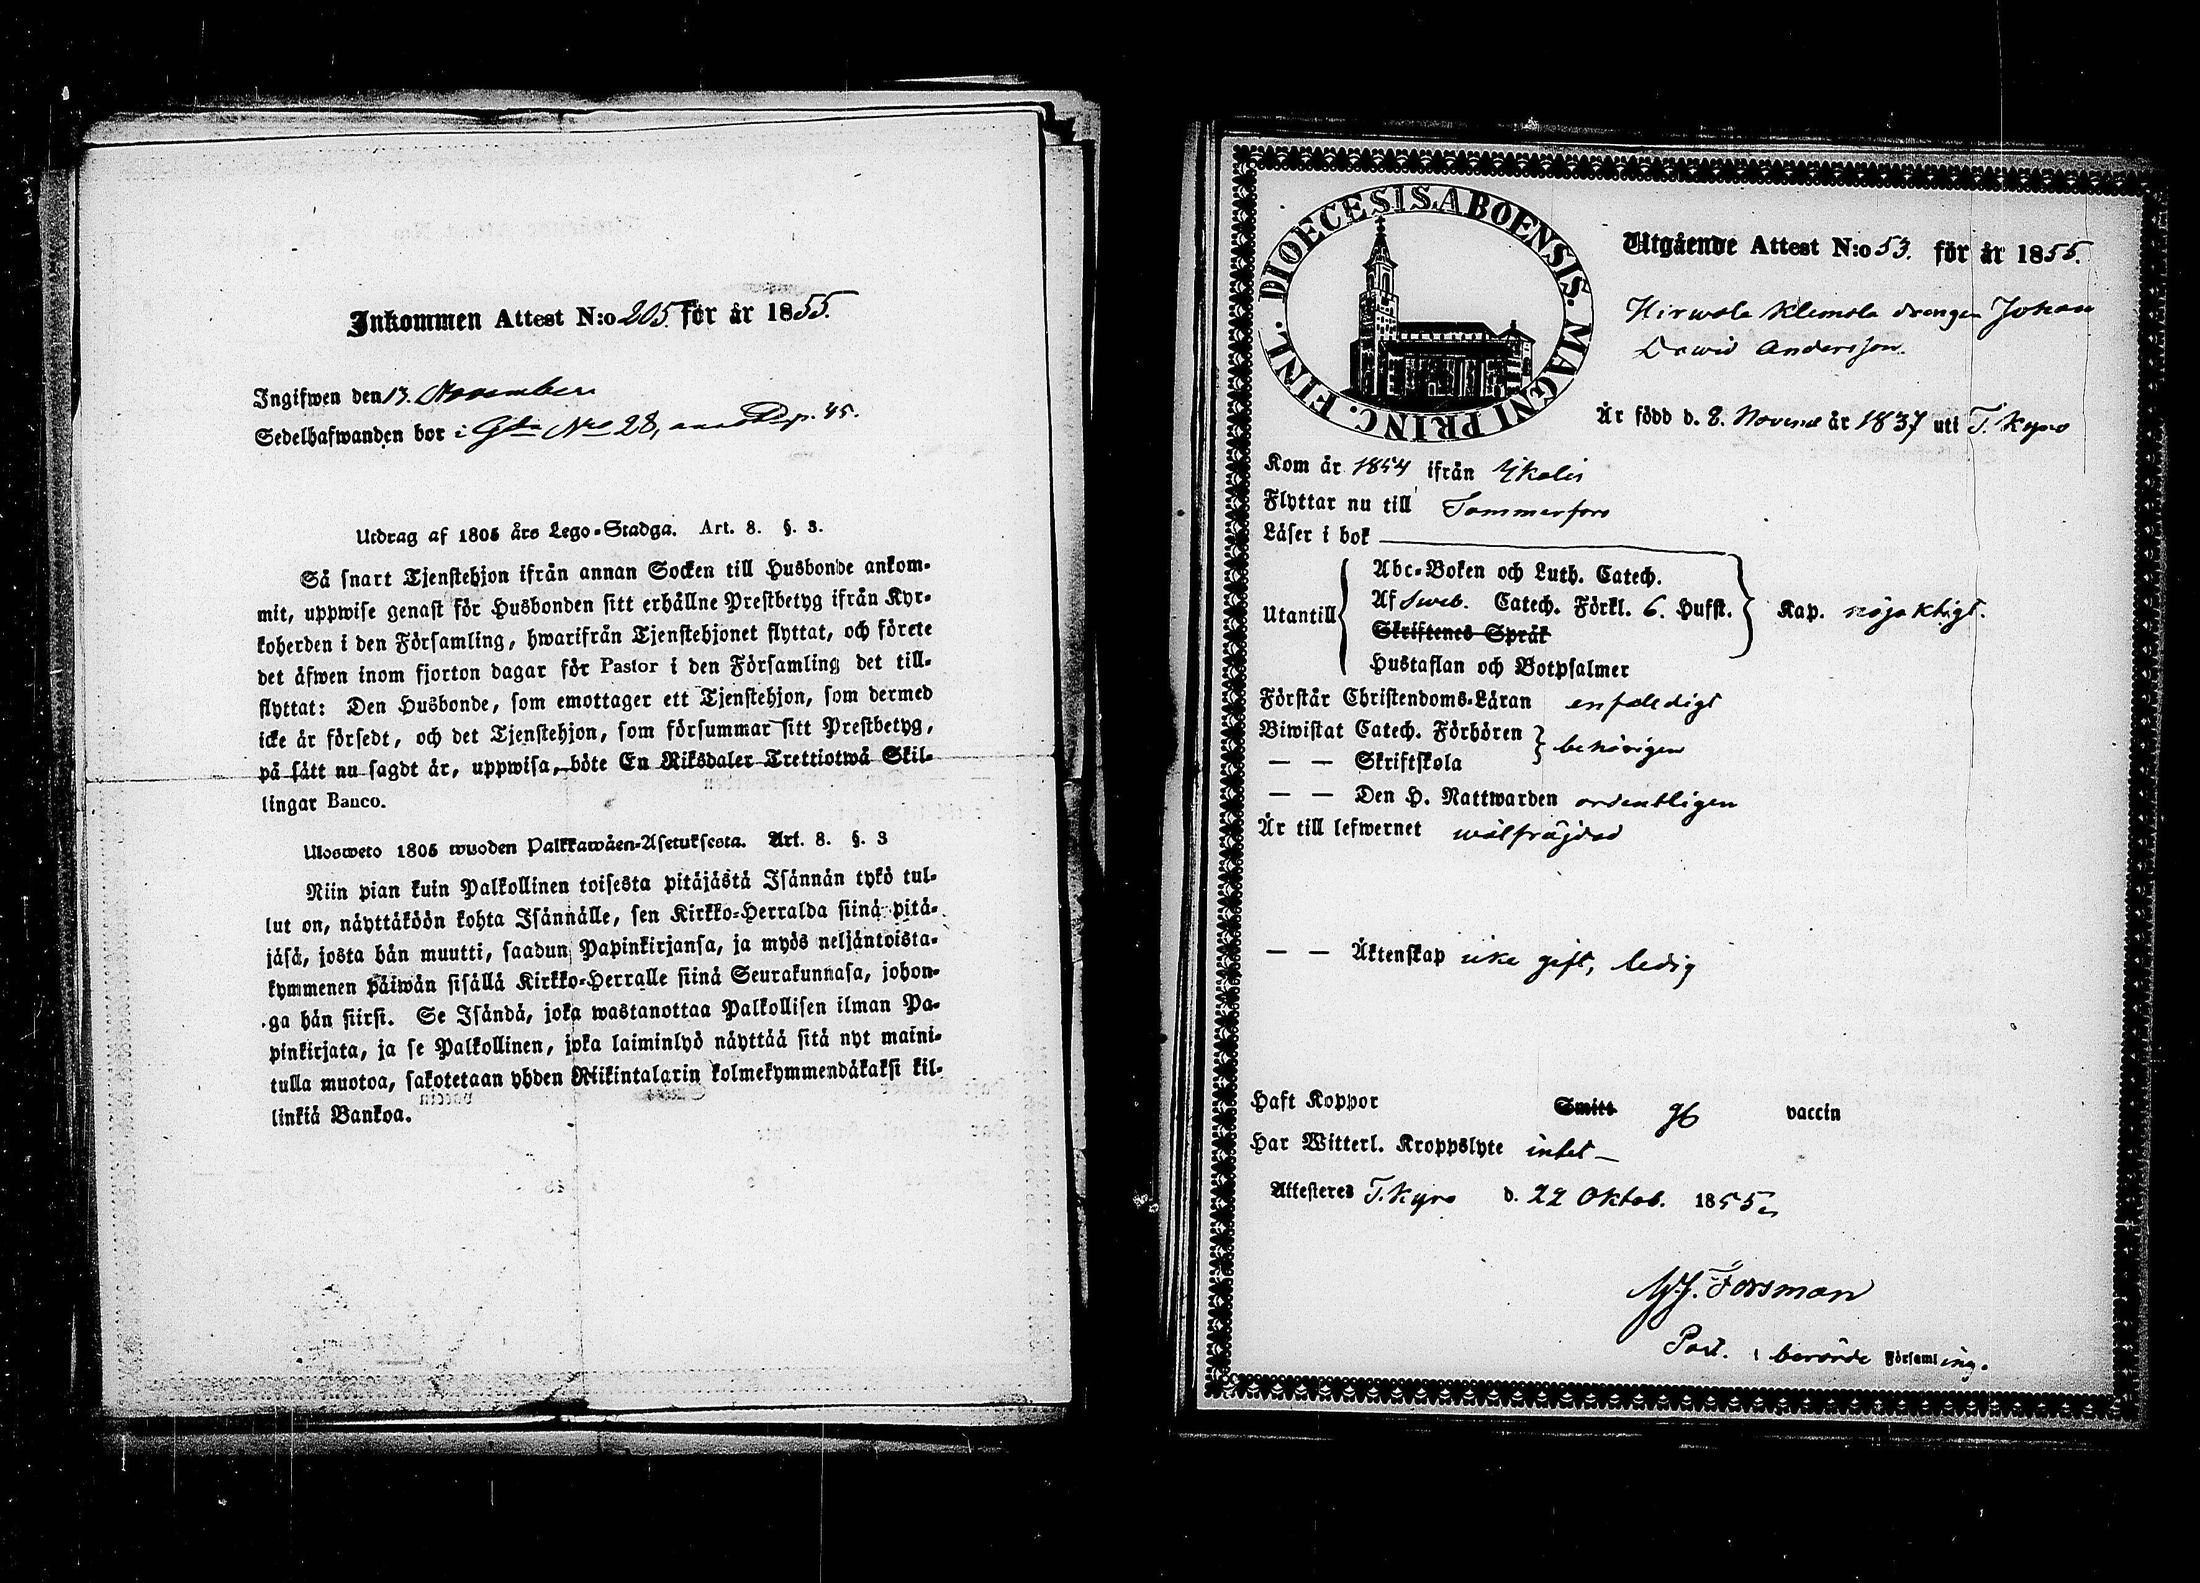 Inkommen Attest N:o 205. för år 1855.
Ingifwen den 13. November
Sedelhafwanden bor i Gdn Nro 28, p. 45.
Utdrag af 1805 års Lego-Stadga. Art. 8. §. 3.
Så snart Tjenstehjon ifrån annan Socken till Husbonde ankom-
mit, uppwise genast för Husbonden sitt erhållne Prestbetyg ifrån Kyr-
koherden i den Församling, hwarifrån Tjenstehjonet flyttat, och förete
det äfwen inom fjorton dagar för Pastor i den Församling det till-
flyttat: Den Husbonde, som emottager ett Tjenstehjon, som dermed
icke är försedt, och det Tjenstehjon, som försummar sitt Prestbetyg,
på sätt nu sagdt är, uppwisa, böte En Riksdaler Trettiotwå Skil-
lingar Banco.
Ulosweto 1805 wuoden Palkkawäen-Asetuksesta. Art. 8. §. 3
Niin pian kuin Palkollinen toisesta pitäjästä Isännän tykö tul-
lut on, näyttäköön kohta Isännälle, sen Kirkko-Herralda siinä pitä-
jäsä, josta hän muutti, saadun Papinkirjansa, ja myös neljäntoista-
kymmenen päiwän sisällä Kirkko-Herralle siinä Seurakunnasa, johon-
ga hän siirsi. Se Isändä, joka wastanottaa Palkollisen ilman Pa-
pinkirjata, ja se Palkollinen, joka laiminlyö näyttää sitä nyt maini-
tulla muotoa, sakotetaan yhden Riikintalarin kolmekymmendäkaksi kil-
linkiä Bankoa.
DIOECESIS ABOENSIS. MAGNI PRINC. FINL.
Utgående Attest N:o 53. för år 1855.
Hirwola Klemola drengen Johan
Dawid Andersson.
Är född d. 8. Novemb år 1837 uti T. Kyro
Kom år 1854 ifrån Ikalis
Flyttar nu till Tammerfors
Läser i bok
Utantill
Abc-Boken och Luth. Catech.
Af Sweb. Catech. Förkl. 6. Hufst. Kap. nöjaktigt.
Skriftenes Språk
Hustaflan och Botpsalmer
Förstår Christendoms-Läran enfaldigt
Biwistat Catech. Förhören behörigen
— — Skriftskola
— — Den H. Nattwarden ordentligen
Är till lefwernet wälfräjdad
— — Äktenskap icke gift, ledig
Haft Koppor Smitt gb vaccin
Har Witterl. Kroppslyte intet —
Attesteres T. Kyro d. 22 Oktob. 1855
Forsman
Past. i berörde Församling.